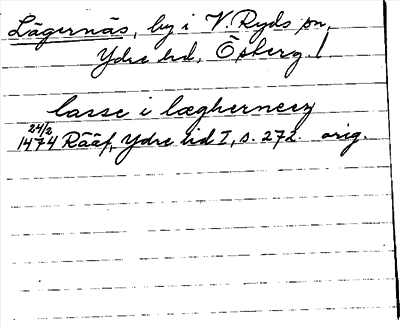 Lägernäs, by i V. Ryds sn,
Ydre hd, Östergl.
lasse i læghernees
24/2
1474 Rääf, Ydre hd I, s. 272. orig.